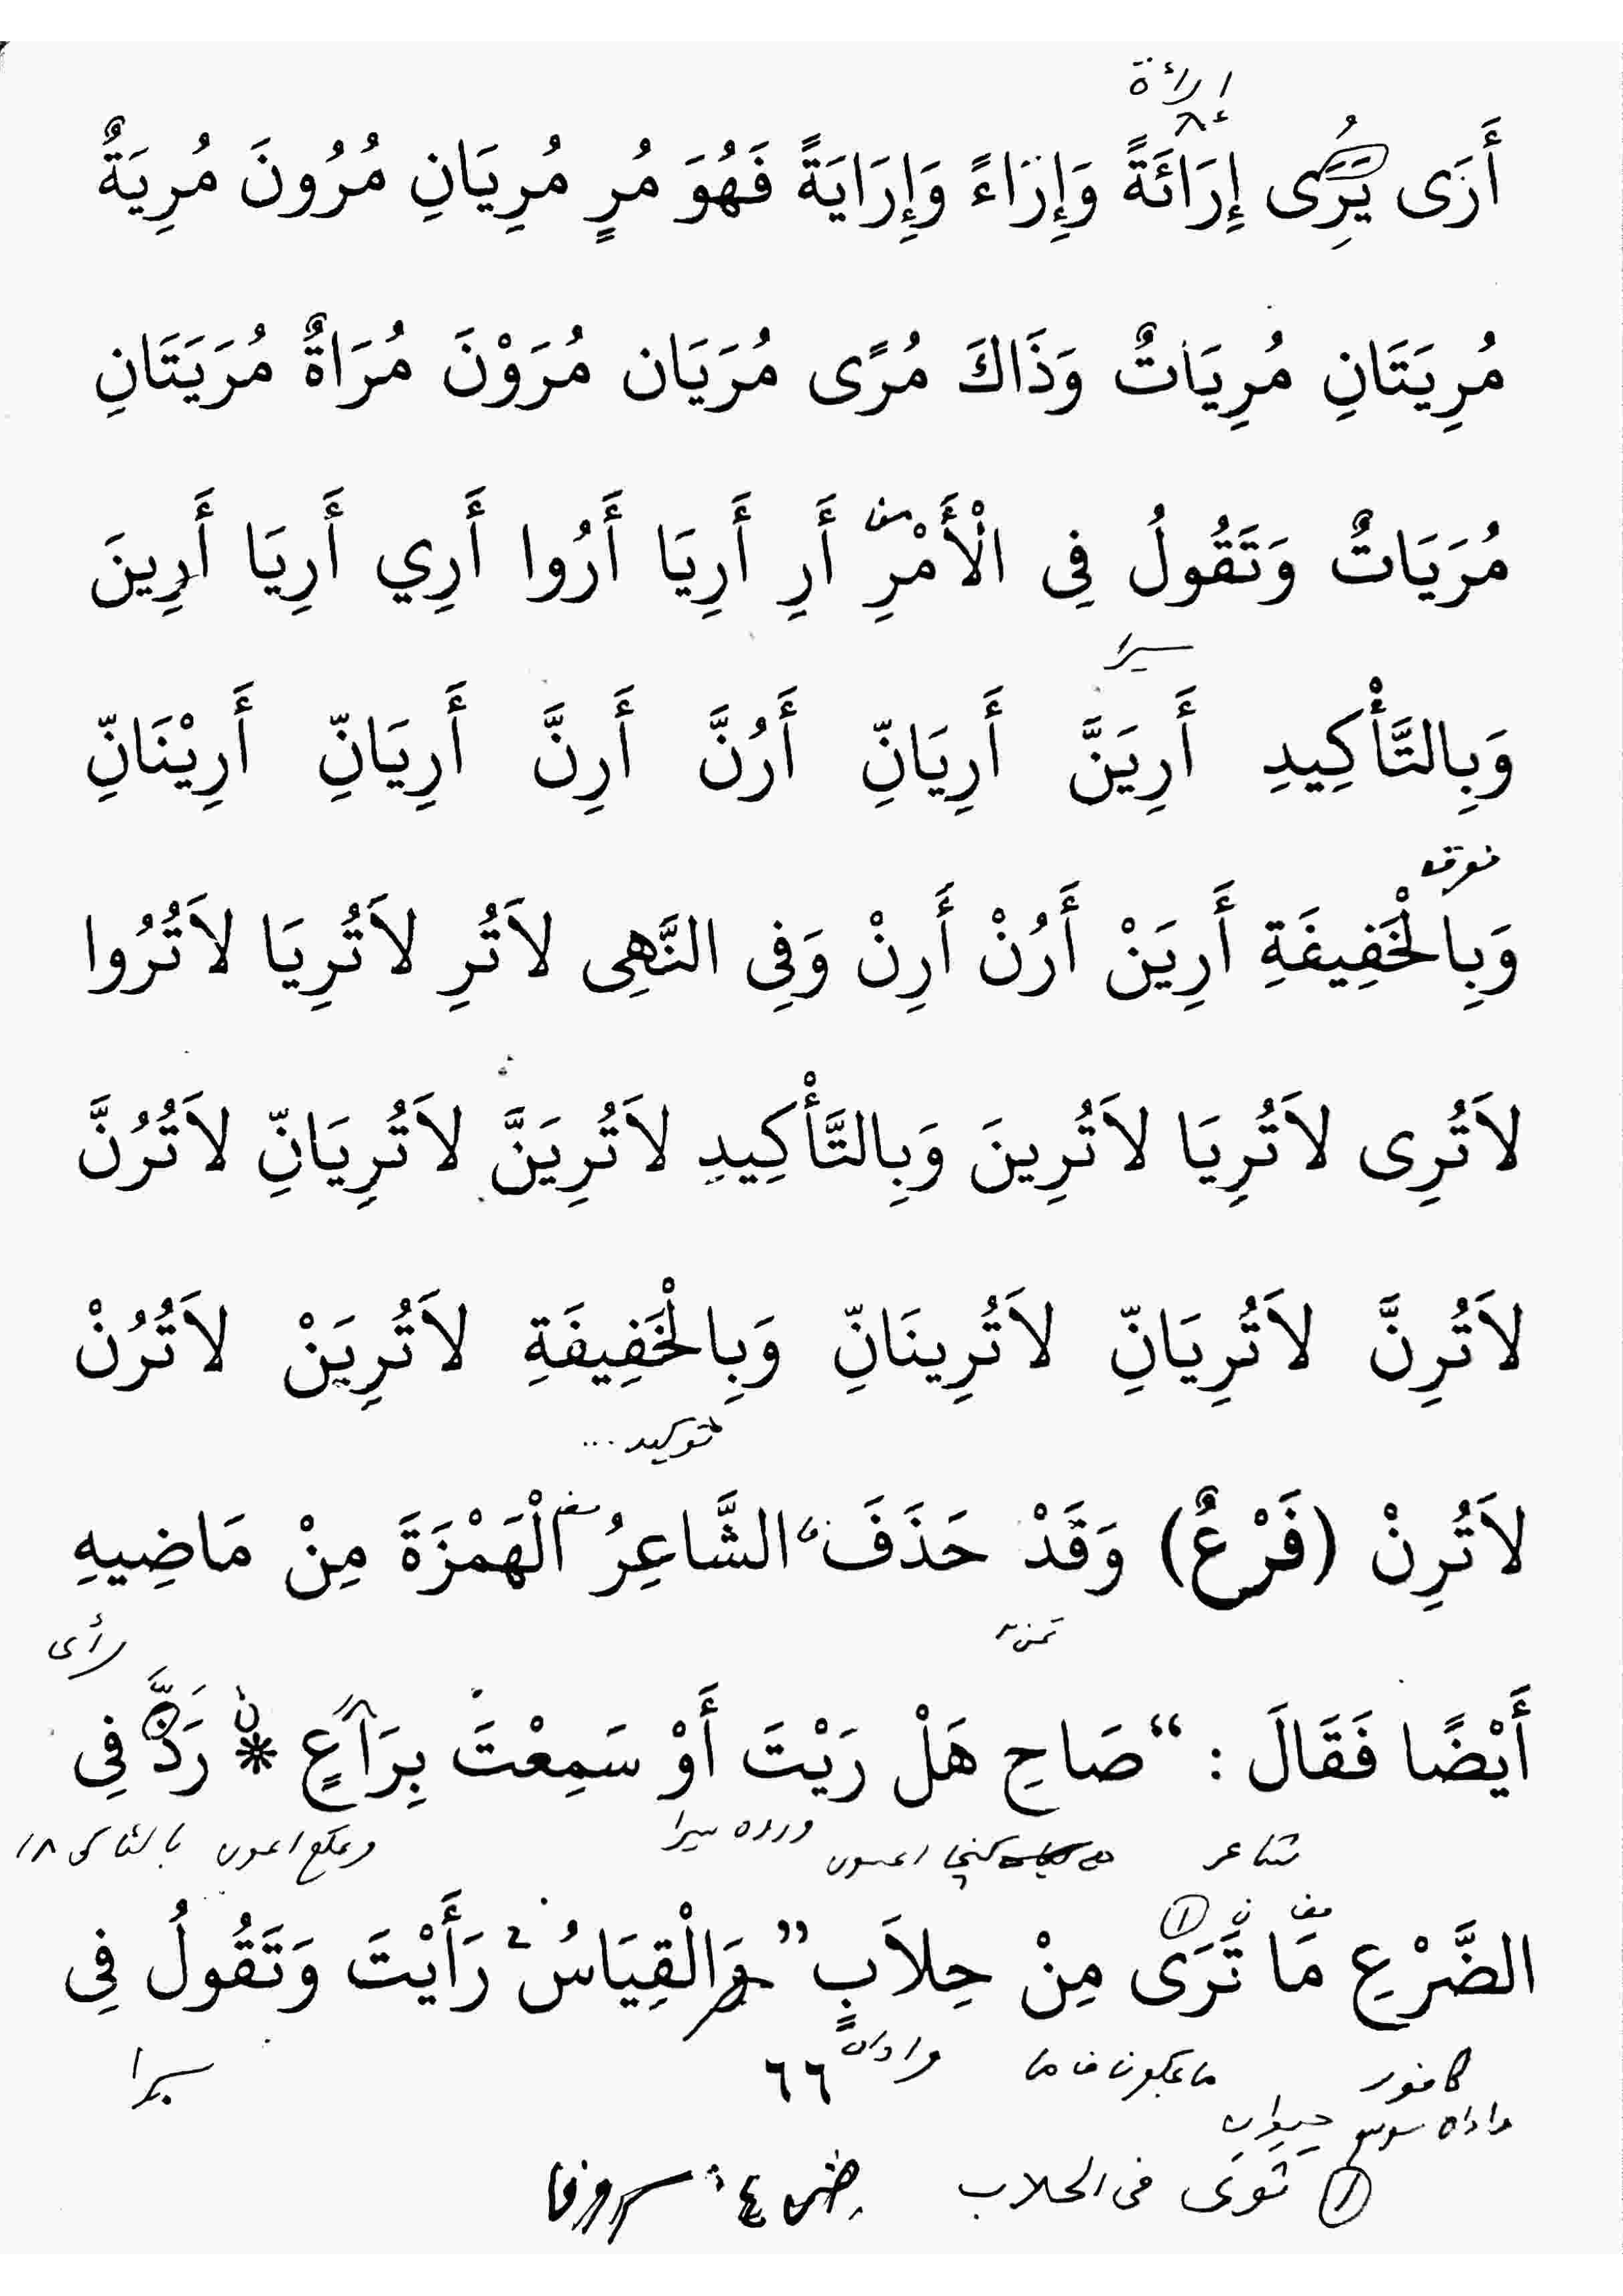 إراءة
أَرَى يُرِى إِرَائَةً وَإِرَاءً وَإِرَايَةً فَهُوَ مُرٍ مُرِيَانِ مُرُونَ مُرِيَةٌ
مُرِيَتَانِ مُرِيَاتٌ وَذَاكَ مُرًى مُرَيَان مُرَوْنَ مُرَاةٌ مُرَيَتَانِ
مُرَيَاتٌ وَتَقُولُ فِى الْأَمْرِ أَرِ أَرِيَا أَرُوا أَرِي أَرِيَا أَرِينَ
وَبِالتَّأْكِيدِ أَرِيَنَّ أَرِيَانِّ أَرُنَّ أَرِنَّ أَرِيَانِّ أَرِيْنَانِّ
وَبِالْخَفِيفَةِ أَرِيَنْ أَرُنْ أَرِنْ وَفِى النَّهِى لاَتُرِ لاَتُرِيَا لاَتُرُوا
لاَتُرِى لاَتُرِيَا لاَتُرِينَ وَبِالتَّأْكِيدِ لاَتُرِيَنَّ لاَتُرِيَانِّ لاَتُرُنَّ
لاَتُرِنَّ لاَتُرِيَانِّ لاَتُرِينَانِّ وَبِالْخَفِيفَةِ لاَتُرِيَنْ لاَتُرُنْ
توكيد ...
لاَتُرِنْ (فَرْعٌ) وَقَدْ حَذَفَ الشَّاعِرُ الْهَمْزَةَ مِنْ مَاضِيهِ
رأى
أَيْضًا فَقَالَ : “صَاحِ هَلْ رَيْتَ أَوْ سَمِعْتَ بِرَاعٍ * رَدَّ فِى
شاعر
الضَّرْعِ مَا تَرَى مِنْ حِلاَبٍ” وَالْقِيَاسُ رَأَيْتَ وَتَقُولُ فِى
٦٦
(١) ثوى فى الحلاب